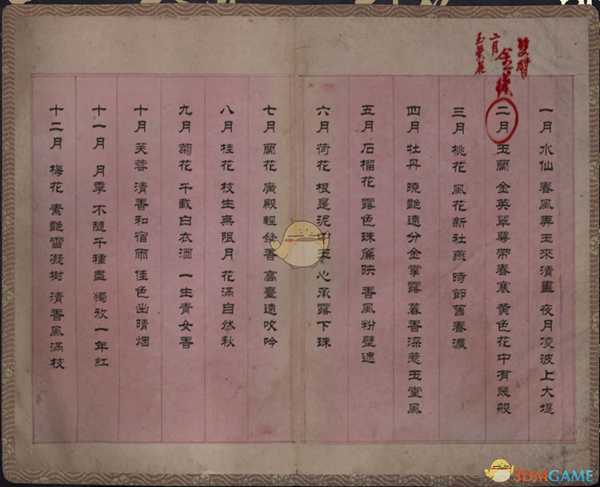 六月
一月 水仙 春風弄玉來清晝 夜月凌波上大堤
二月 玉蘭 金英翠萼帶春寒 黃色花中有幾般
三月 桃花 風花新社燕 時節舊春濃
四月 牡丹 曉艷遠分金掌露 暮香深惹玉堂風
五月 石榴花 露色珠簾映 香風粉壁遮
六月 荷花 根是泥中玉 心承露下珠
七月 蘭花 廣殿輕發香 高臺遠吹吟
八月 桂花 枝生無限月 花滿自然秋
九月 菊花 千載白衣酒 一生青女香
十月 芙蓉 清香和宿雨 佳色出晴烟
十一月 月季 不隨千種盡 獨放一年紅
十二月 梅花 素艷雪凝樹 清香風滿枝
3DMGAME